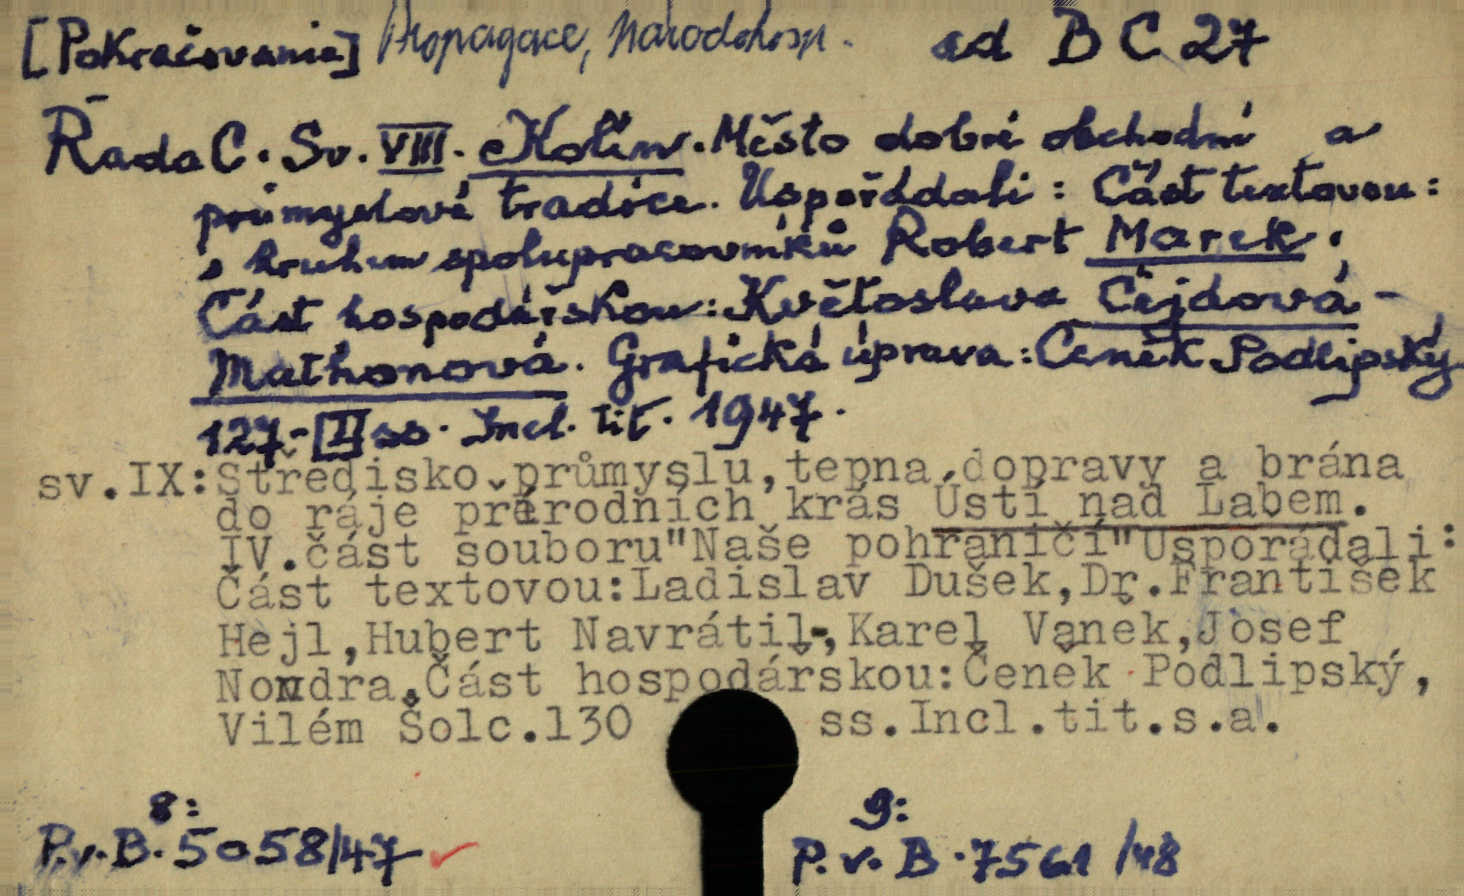 [Pokračovanie] Propagace, národohosp. ad B C 27
Řada C. Sv. VIII. Kolín. Město dobré obchodní a
průmyslové tradice. Uspořádali: Část textovou:
s kruhem spolupracovníků Robert Marek.
Část hospodářskou: Květoslava Čejdová-
Mathonová. Grafická úprava: Čeněk Podlipský
127-[I] ss. Incl. tit. 1947.
sv.IX:Středisko průmyslu,tepna dopravy a brána
do ráje přírodních krás Ústí nad Labem.
IV.část souboru"Naše pohraničí"Usporádali:
Část textovou:Ladislav Dušek,Dr.František
Hejl,Hubert Navrátil,Karel Vaněk,Josef
Noudra.Část hospodárskou:Čeněk Podlipský,
Vilém Šolc.130 ss.Incl.tit.s.a.
8: 9:
P.v.B. 5058/47 P.v.B.7561/48